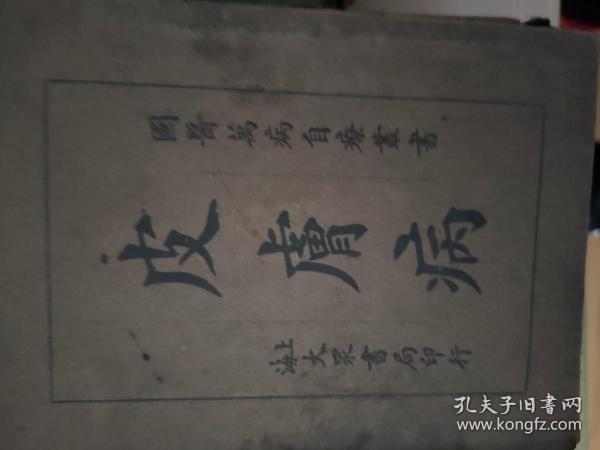 國醫萬病自療叢書
皮膚病
上海大眾書局印行
孔夫子旧书网
www.kongfz.com